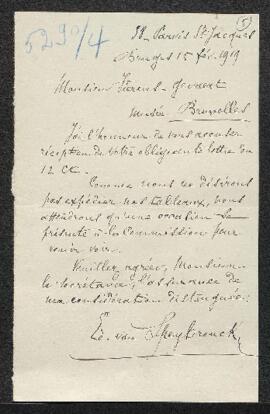 5290/4
(5)
Parvis St Jacques
Bruges 15 fév. 1919
Monsieur Fierens-Gevaert
Musée Bruxelles
J'ai l'honneur de vous accuser
réception de votre obligeante lettre du
12 Ct.
Comme nous ne désirons
pas expédier nos tableaux, nous
attendrons qu'une occasion se
présente à la Commission pour
venir voir.
Veuillez agréer, Monsieur
le Secrétaire, l'assurance de
ma considération distinguée.
van Speybrouck